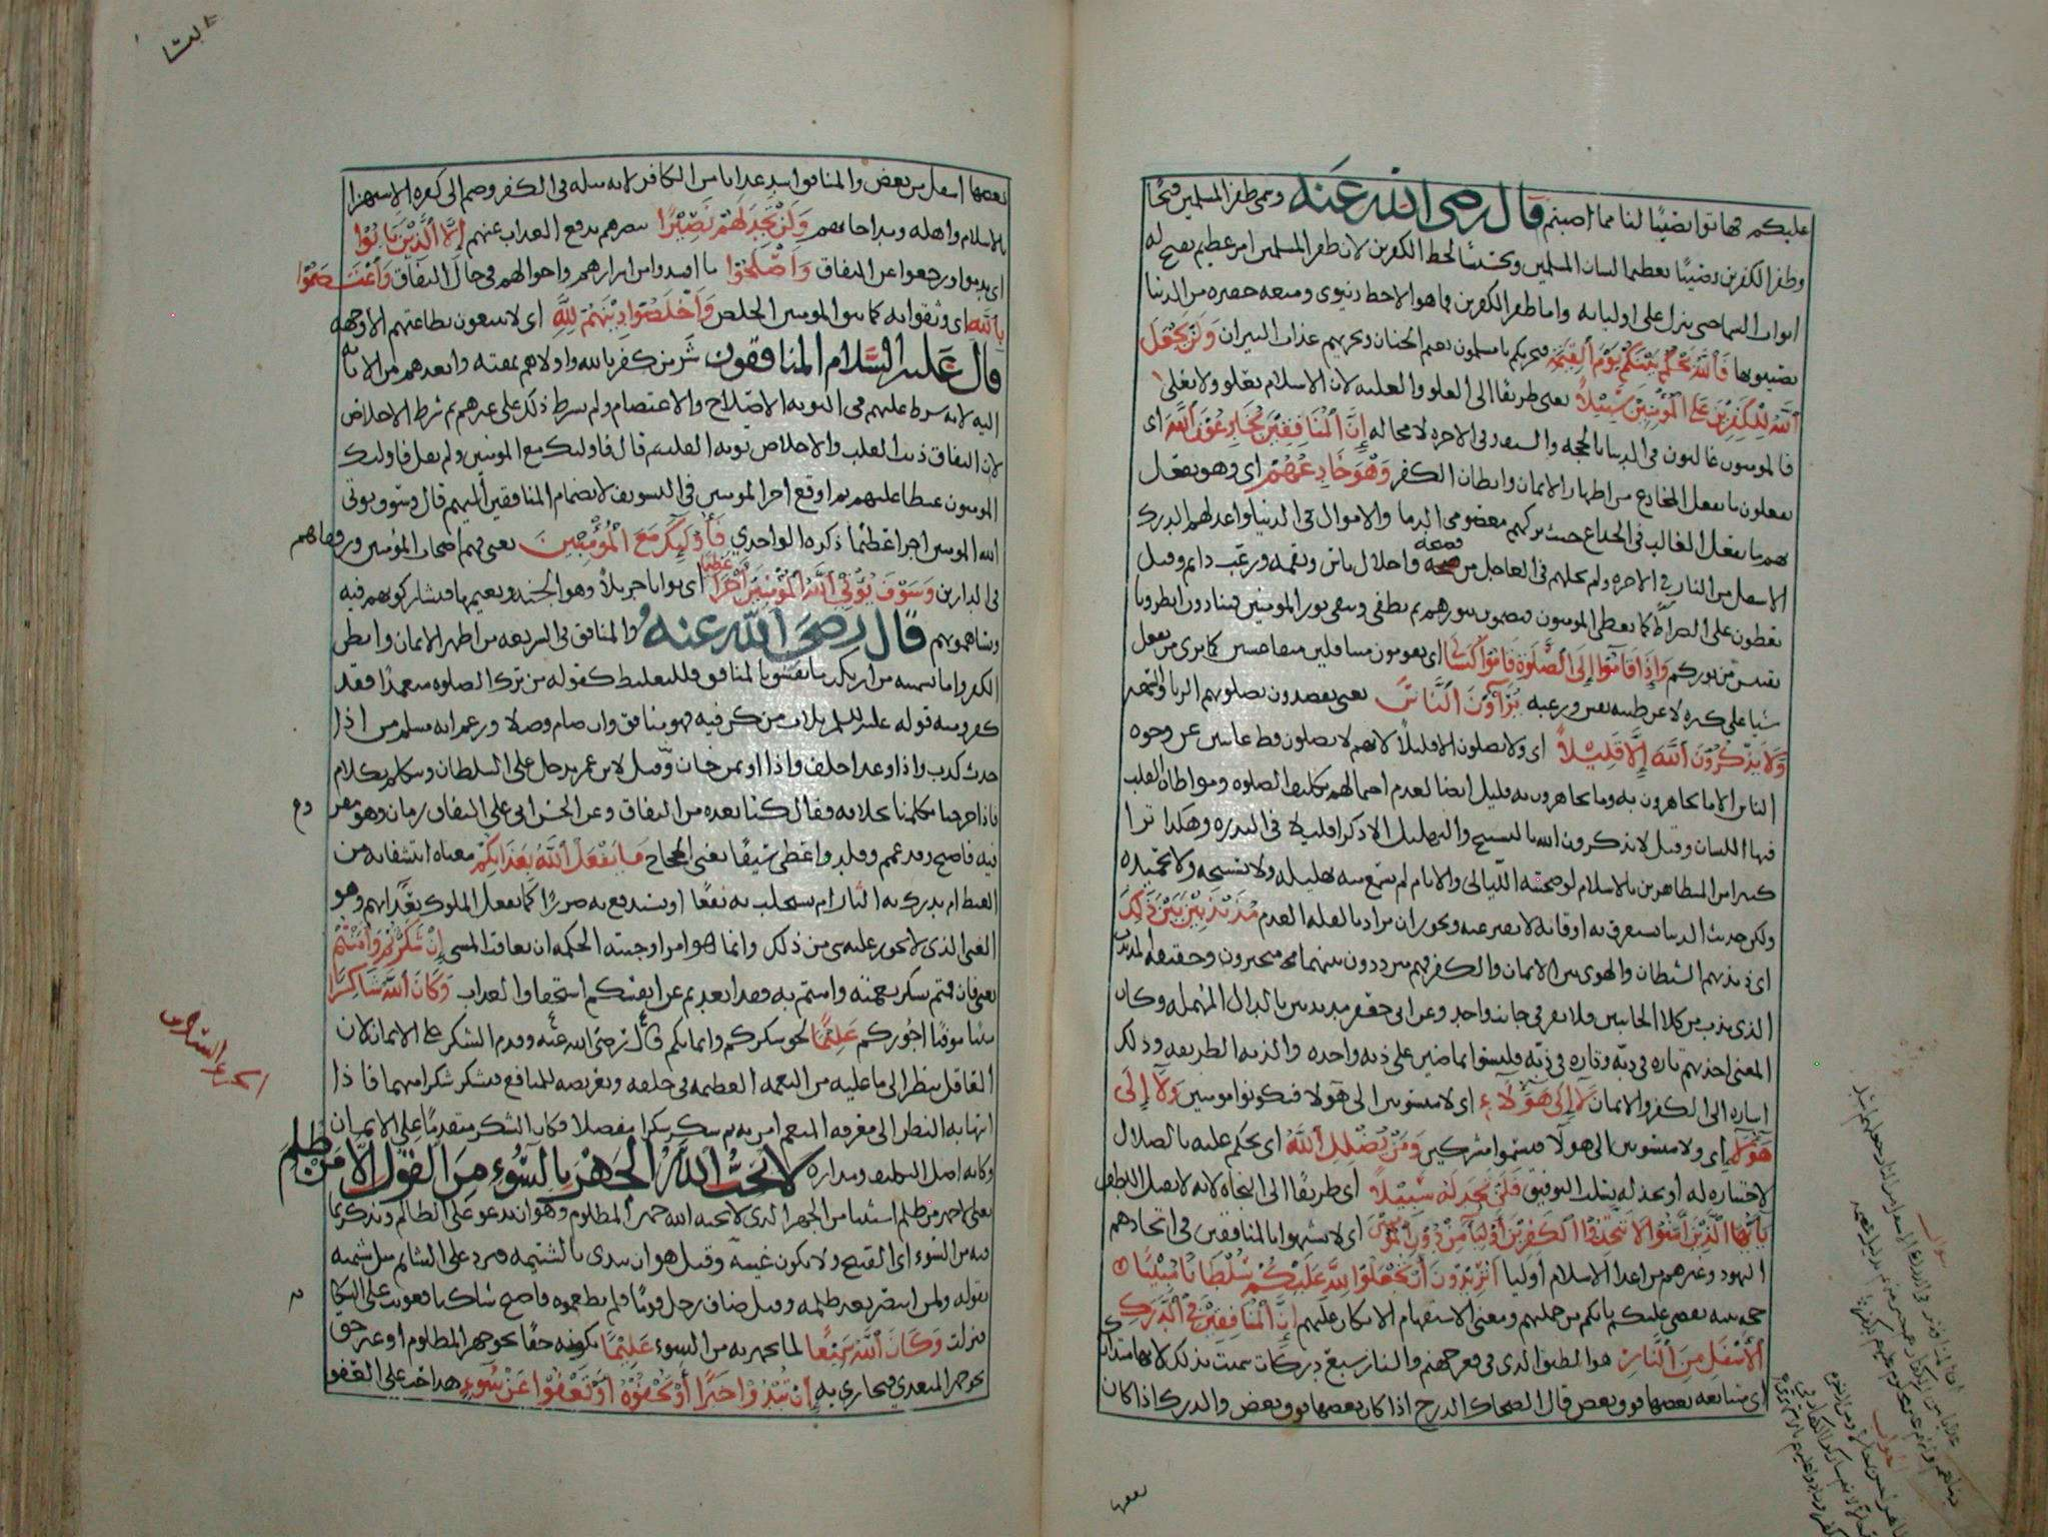 عليكم فهاتوا نصيبًا لنا مما اصبتم قال رضى الله عنه وسمى ظفر المسلمين فتحًا
وظفر الكفرين نصيبًا تعظيما لشان المسلمين وتخسيسًا لحظ الكفرين لان ظفر المسلمين امر عظيم يفتح له
ابواب السما حتى ينزل على اوليايه واما ظفر الكفرين فما هو الا حظ دنيوى ومتعه حضره من الدنيا
يصيبونها فَٱللَّهُ يَحْكُمُ بَيْنَكُمْ يَوْمَ ٱلْقِيَمَةِ فيحزيكم يا مسلمون نعيم الجنان ويحزيهم عذاب النيران وَلَن يَجْعَلَ
ٱللَّهُ لِلْكَفِرِينَ عَلَى ٱلْمُؤْمِنِينَ سَبِيلًا يعنى طريقًا الى العلو والغلبه لان الاسلام يعلو ولا يعلى
فالمومنون غالبون فى الدنيا بالحجه والسيف وفى الاخره لا محاله إِنَّ ٱلْمُنَافِقِينَ يُخَادِعُونَ ٱللَّهَ اى
يفعلون ما يفعل المخادع من اظهار الايمان وابطان الكفر وَهُوَ خَادِعُهُمْ اى وهو يفعل
بهم ما يفعل الغالب فى الخداع حيث تركهم معصومى الدما والاموال فى الدنيا واعد لهم الدرك
الاسفل من النار فى الاخره ولم يخلهم فى العاجل من فضيحه واحلال باس ونقمه ورعب دايم وقيل
يعطون على الصراط نورا كما يعطى المومنون فيمضون بنورهم ثم يطفى ويبقى نور المومنين فينادون انظرونا
نقتبس من نوركم وَإِذَا قَامُوٓا۟ إِلَى ٱلصَّلَوةِ قَامُوا۟ كُسَالَىٰ اى يقومون متثاقلين متقاعسين كما ترى من يفعل
شيا على كره لا عن طيبه نفس ورغبه يُرَآءُونَ ٱلنَّاسَ يعنى يقصدون بصلوتهم الريا والسمعه
وَلَا يَذْكُرُونَ ٱللَّهَ إِلَّا قَلِيلًا اى ولا يصلون الا قليلًا لانهم لا يصلون قط غايبين عن وجوه
الناس الا ما يجاهرون به وما يجاهرون به قليل ايضا لعدم احتمالهم تكليف الصلوه ومواطاه القلب
فيها اللسان وقيل لا يذكرون الله بالتسبيح والتهليل الا ذكرا قليلا فى الندره وهكذا ترا
كثيرا من المتظاهرين بالاسلام لو صحبته الليالى والايام لم تسمع منه تهليله ولا تسبيحه ولا تحميده
ولكن حديث الدنيا يستغرق به اوقاته لا يفتر عنه ويجوز ان يراد بالقله العدم مُذَبْذَبِينَ بَيْنَ ذَلِكَ
اى ذبذبهم الشيطان والهوى بين الايمان والكفر فهم مترددون بينهما متحيرون وحقيقه المذبذب
الذى يذب عن كلا الجانبين فلا يقر فى جانب واحد وعن ابى جعفر مدبدبين بالدال المهمله وكان
المعنى اخذ بهم تاره فى دبّه وتاره فى دبّه فليسوا بماضين على دبه واحده والدبه الطريقه وذلك
اشاره الى الكفر والايمان لَآ إِلَىٰ هَٰٓؤُلَآءِ اى لا منسوبين الى هولا فيكونوا مومنين وَلَآ إِلَىٰ
هَٰٓؤُلَآءِ اى ولا منسوبين الى هولا فيسموا مشركين وَمَن يُضْلِلِ ٱللَّهُ اى يحكم عليه بالضلال
لاختياره له او يخذله بسلب التوفيق فَلَن تَجِدَ لَهُ سَبِيلًا اى طريقًا الى النجاه لانه لا يقبل اللطف
يَٰٓأَيُّهَا ٱلَّذِينَ ءَامَنُوا۟ لَا تَتَّخِذُوا۟ ٱلْكَفِرِينَ أَوْلِيَآءَ مِن دُونِ ٱلْمُؤْمِنِينَ اى لا تشبهوا بالمنافقين فى اتخاذهم
اليهود وغيرهم من اعدا الاسلام اوليا أَتُرِيدُونَ أَن تَجْعَلُوا۟ لِلَّهِ عَلَيْكُمْ سُلْطَانًا مُبِينًا
حجه بينه يقضى عليكم بانكم من جملتهم ومعنى الاستفهام الانكار عليهم إِنَّ ٱلْمُنَافِقِينَ فِى ٱلدَّرْكِ
ٱلْأَسْفَلِ مِنَ ٱلنَّارِ هو الطبق الذى فى قعر جهنم والنار سبع دركات سميت بذلك لانها متداركه
اى متتابعه بعضها فوق بعض قال الضحاك الدرج اذا كان بعضها فوق بعض والدرك اذا كان
بعضها
بعضها اسفل من بعض والمنافق اشد عذابا من الكافر لانه مثله فى الكفر وضم الى كفره الاستهزا
بالاسلام واهله ومداجاتهم وَلَن تَجِدَ لَهُمْ نَصِيرًا ينصرهم بدفع العذاب عنهم إِلَّا ٱلَّذِينَ تَابُوا۟
اى ندموا ورجعوا عن النفاق وَأَصْلَحُوا۟ ما افسدوا من اسرارهم واحوالهم فى حال النفاق وَٱعْتَصَمُوا۟
بِٱللَّهِ اى وثقوا به كما يثق المومنون الخلص وَأَخْلَصُوا۟ دِينَهُمْ لِلَّهِ اى لا يبتغون بطاعتهم الا وجهه
قال عليه السلام المنافقون شر من كفر بالله واولاهم بمقته وابعدهم من الانابه
اليه لانه شرط عليهم فى التوبه الاصلاح والاعتصام ولم يشرط ذلك على غيرهم ثم شرط الاخلاص
لان النفاق ذنب القلب والاخلاص توبه القلب ثم قال فاوليك مع المومنين ولم يقل فاوليك
المومنون غيظا عليهم ثم اوقع اجر المومنين فى التسويف لانضمام المنافقين اليهم قال وسوف يوتى
الله المومنين اجرا عظيما ذكره الواحدي فَأُو۟لَٰٓئِكَ مَعَ ٱلْمُؤْمِنِينَ يعنى فهم اصحاب المؤمنين ورفقاهم
فى الدارين وَسَوْفَ يُؤْتِى ٱللَّهُ ٱلْمُؤْمِنِينَ أَجْرًا عَظِيمًا اى ثوابا جزيلًا وهو الجنه ونعيمها فيشاركونهم فيه
ويساهمونهم قال رضى الله عنه والمنافق فى الشريعه من اظهر الايمان وابطن
الكفر واما تسميه من ارتكب ما يفسق به بالمنافق فللتغليظ كقوله من ترك الصلوه متعمدًا فقد
كفر ومنه قوله عليه السلم ثلاث من كن فيه فهو منافق وان صام وصلا وزعم انه مسلم من اذا
حدث كذب واذا وعد اخلف واذا اوتمن خان وقيل لابن عمر ندخل على السلطان ونتكلم بكلام
فاذا خرجنا تكلمنا بخلافه فقال كنا نعده من النفاق وعن الحسن اتى على النفاق زمان وهو مقروع
فيه فاصبح وقد عمم وقلد واعطى سيفًا يعنى الحجاج مَا يَفْعَلُ ٱللَّهُ بِعَذَابِكُمْ معناه ايتشفا به من
الغيظ ام يدرك به الثار ام يستجلب به نفعًا او يستدفع به ضررًا كما يفعل الملوك بعذابهم وهو
الغنى الذى لا يجوز عليه شى من ذلك وانما هو امر اوجبته الحكمه ان يعاقب المسى إِن شَكَرْتُمْ وَءَامَنتُمْ
يعنى فان قمتم بشكر نعمته وامنتم به فقد ابعدتم عن انفسكم استحقاق العذاب وَكَانَ ٱللَّهُ شَاكِرًا
مثيبا موفيًا اجوركم عَلِيمًا بحق شكركم وايمانكم قال رضى الله عنه وقدم الشكر على الايمان لان
العاقل ينظر الى ما عليه من النعمه العظيمه فى خلقه وتعريضه للمنافع فيشكر شكرا مبهما فاذا
انتها به النظر الى معرفه المنعم امن به ثم شكر شكرا مفصلا فكان الشكر متقدمًا على الايمان
وكانه اصل التكليف ومداره لا يحب الله الجهر بالسوء من القول الا من ظلم
يعنى الا جهر من ظلم استثنا من الجهر الذى لا يحبه الله جهر المظلوم وهو ان يدعو على الظالم ويذكر بما
فيه من السوء اى القبح ولا يكون غيبة وقيل هو ان يبدى بالشتيمه فيرد على الشاتم مثل شتمه
بقوله ولمن انتصر بعد ظلمه وقيل ضاف رجل قومًا فلم يطعموه فاصبح شاكيا فعوتب على الشكايه
فنزلت وَكَانَ ٱللَّهُ سَمِيعًا لما يجهر به من السوء عَلِيمًا بكونه حقًا نحو جهر المظلوم او غير حق
نحو جهر المتعدى فيجازى به إِن تُبْدُوا۟ خَيْرًا أَوْ تُخْفُوهُ أَوْ تَعْفُوا۟ عَن سُوٓءٍ هذا حث على العفو
الجزء السادس